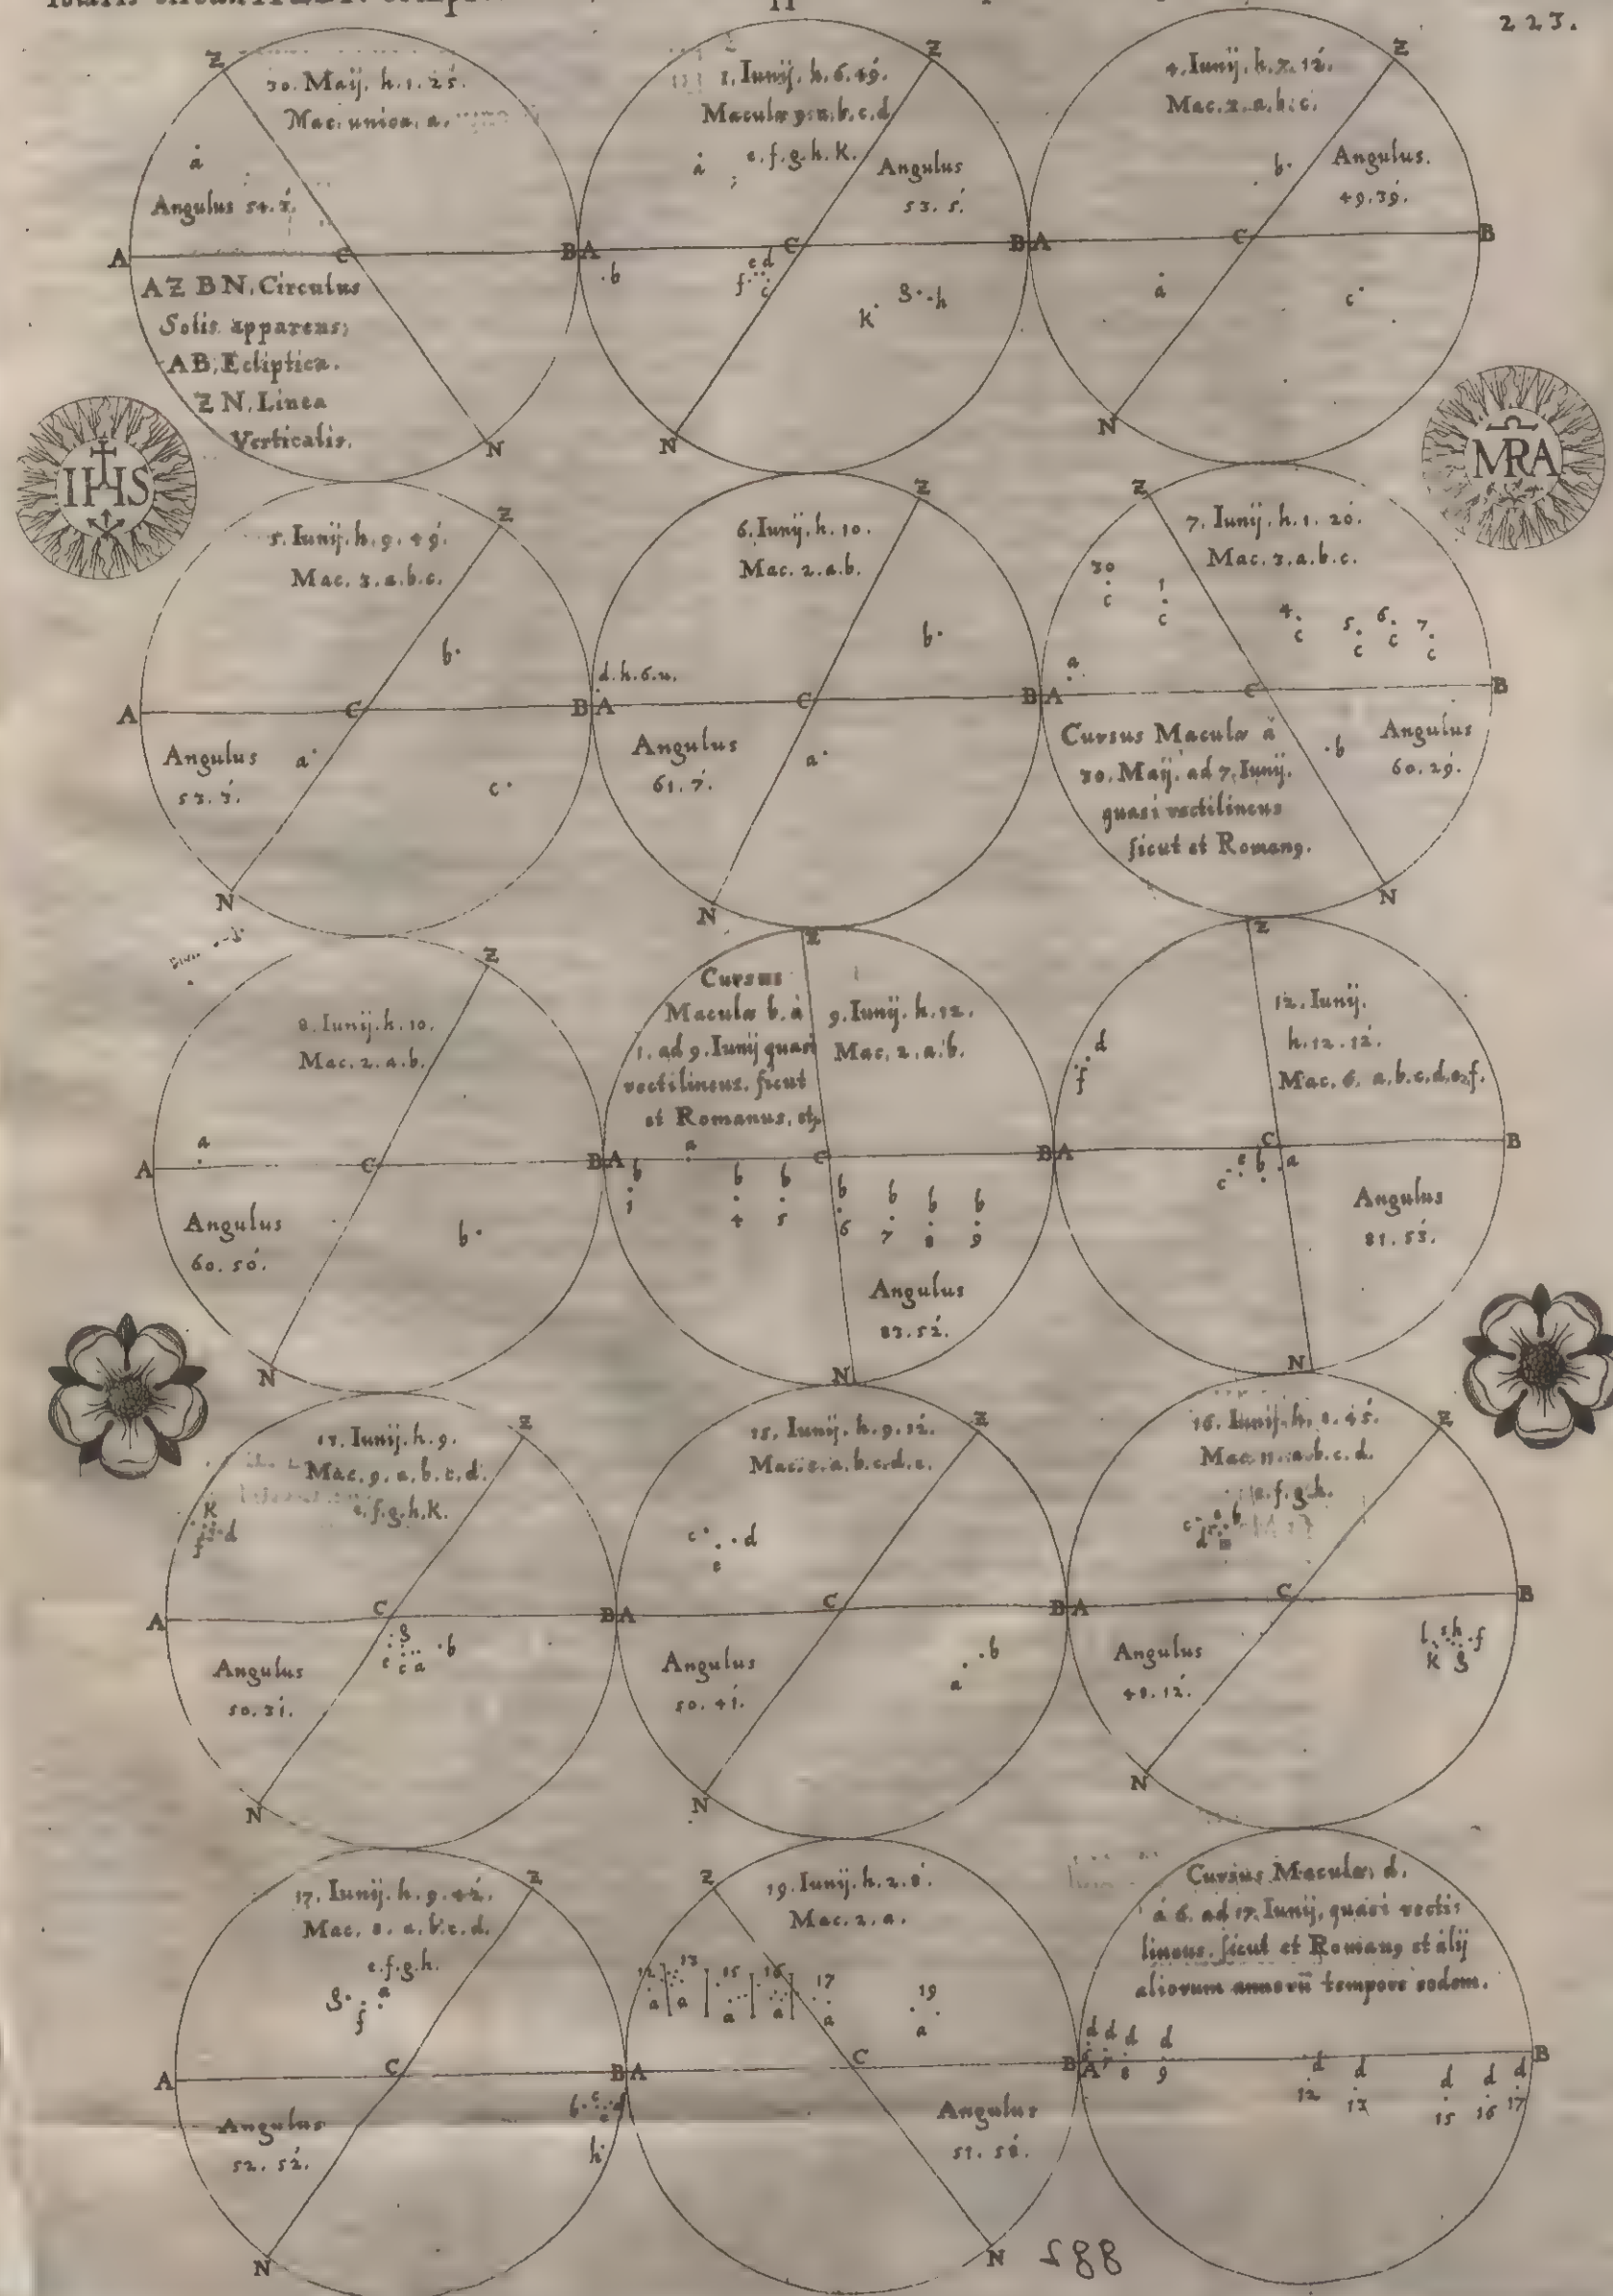 223.
Z
30. Maij. h. 1. 25.
Mac. unica. a.
a
Angulus 54.
A C B
AZ BN. Circulus
Solis apparens;
AB, Ecliptica.
ZN. Linea
Verticalis.
N
Z
1. Iunij. h. 6. 49.
Maculæ 9. a. b. c. d
e. f. g. h. K.
a
Angulus
53. 5.
A C B
b
e d
f c
g h
K
N
Z
4. Iunij. h. 7. 12.
Mac. 3. a. b. c.
b
Angulus.
49. 39.
A C B
a c
N
IHS
MRA
Z
5. Iunij. h. 9. 49.
Mac. 3. a. b. c.
b
A C B
Angulus a
53. 3.
c
N
Z
6. Iunij. h. 10.
Mac. 2. a. b.
b
d. h. 6. u.
A C B
Angulus a
61. 7.
N
Z
7. Iunij. h. 1. 20.
Mac. 3. a. b. c.
30 1 4 5 6 7
c c c c c c
a
A C B
Cursus Maculæ à
30. Maij. ad 7. Iunij.
quasi rectilineus
sicut et Roman9.
b
Angulus
60. 29.
N
Z
8. Iunij. h. 10.
Mac. 2. a. b.
a
A C B
Angulus
60. 50.
b
N
Z
Cursus
Maculæ b. à
1. ad 9. Iunij quasi
rectilineus. sicut
et Romanus. etc
9. Iunij. h. 12.
Mac. 2. a. b.
a
A C B
b b b b b b b
1 4 5 6 7 8 9
Angulus
83. 52.
N
Z
12. Iunij.
h. 12. 12.
Mac. 6. a. b. c. d. e. f.
d
f
A C B
c e b a
Angulus
81. 53.
N
Z
13. Iunij. h. 9.
Mac. 9. a. b. c. d.
e. f. g. h. K.
K
f d
A C B
g
e c a b
Angulus
50. 31.
N
Z
15. Iunij. h. 9. 12.
Mac. 5. a. b. c. d. e.
c d
e
A C B
Angulus
50. 41.
b
a
N
Z
16. Iunij. h. 8. 45.
Mac. 11. a. b. c. d.
e. f. g. h.
c a b
d
A C B
Angulus
48. 12.
l h f
K g
N
Z
17. Iunij. h. 9. 42.
Mac. 8. a. b. c. d.
e. f. g. h.
g a
f
A C B
b c d
e
h
Angulus
52. 52.
N
Z
19. Iunij. h. 2. 8.
Mac. 2. a.
12 13 15 16 17 19
a a a a a a
A C B
Angulus
51. 58.
N
Cursus Maculæ, d.
à 6. ad 17. Iunij, quasi recti:
lineus. sicut et Roman9 et alij
aliorum annorū tempore eodem.
d d d d
6 7 8 9
A B
d d d d d
12 13 15 16 17